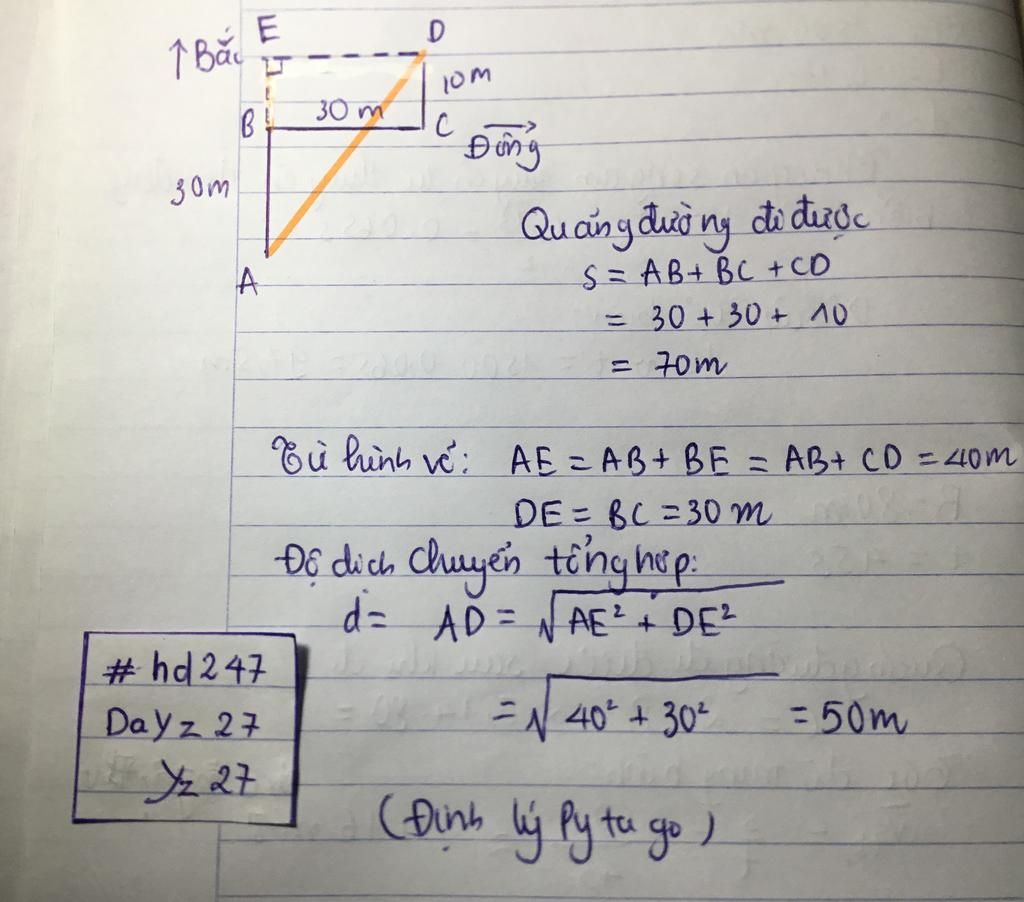 E
D
↑Bắc
10m
30 m
B
C
Đông
30m
A
Quảng đường đi được
S = AB + BC + CD
= 30 + 30 + 10
= 70m
Từ hình vẽ: AE = AB + BE = AB + CD = 40m
DE = BC = 30 m
Độ dịch chuyển tổng hợp:
d = AD = √AE² + DE²
= √40² + 30² = 50m
(Định lý Py ta go)
# hd247
Dayz 27
Yz 27